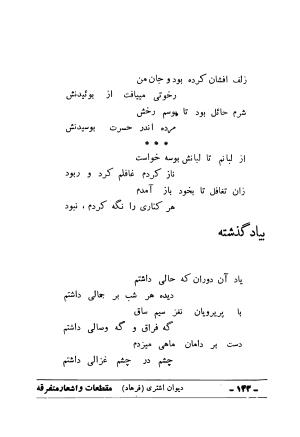 زلف افشان کرده بود و جان من
رخوتی مییافت از بوئیدنش
شرم حائل بود تا بوسم رخش
مرده اندر حسرت بوسیدنش
* * *
از لبانم تا لبانش بوسه خواست
ناز کردم غافلم کرد و ربود
زان تغافل تا بخود باز آمدم
هر کناری را نگه کردم ، نبود
بیاد گذشته
یاد آن دوران که حالی داشتم
دیده هر شب بر جمالی داشتم
با پریرویان نغز سیم ساق
گه فراق و گه وصالی داشتم
دست بر دامان ماهی میزدم
چشم در چشم غزالی داشتم
- ۱۴۳ - دیوان اشتری (فرهاد) مقطعات و اشعار متفرقه